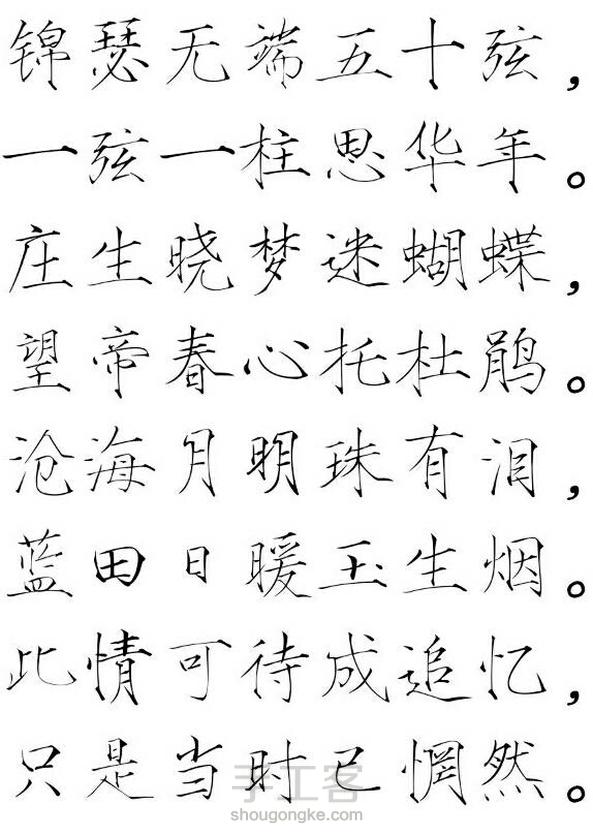 锦瑟无端五十弦，
一弦一柱思华年。
庄生晓梦迷蝴蝶，
望帝春心托杜鹃。
沧海月明珠有泪，
蓝田日暖玉生烟。
此情可待成追忆，
只是当时已惘然。
手工客
shougongke.com